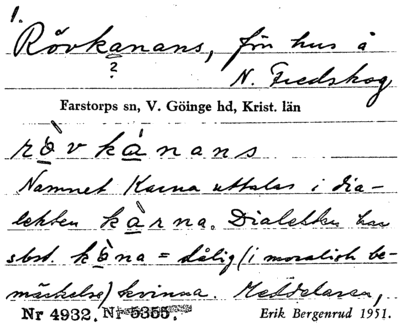 1.
Rövkanans, frn hus å
?
N. Fredskog
Farstorps sn, V. Göinge hd, Krist. län
rövkánans
Namnet Karna uttalas i dia-
lekten kàrna. Dialekten har
sbst. kòna = dålig (i moralisk be-
märkelse) kvinna. Meddelaren,
Nr 4932. Nr 5355. Erik Bergenrud 1951.